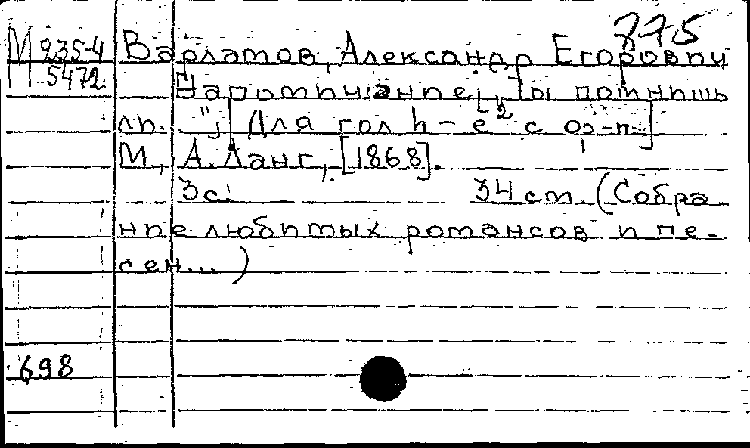 875
М 235-4 Варламов, Александр Егорович
М 5472 Напоминание. ["Ты помнишь
ли..."; Для гол. h-e² с ф-п.]
М., А. Ланг, [1868].
3 с. 34 см. (Собра
ние любимых романсов и пе-
сен...)
698